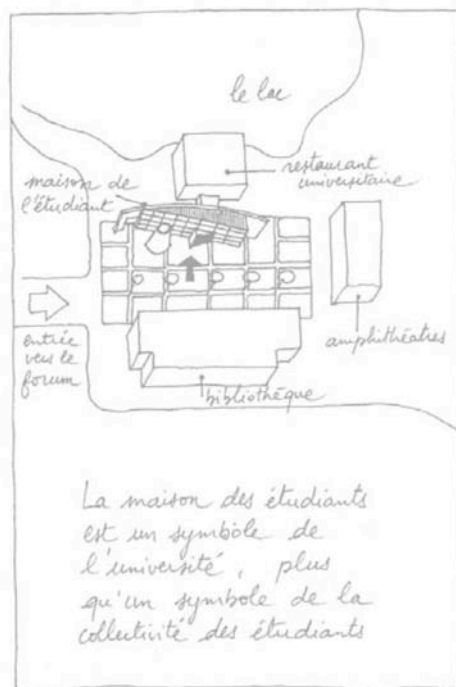 le lac
restaurant
universitaire
maison de
l'étudiant
entrée
vers le
forum
amphithéatres
bibliothèque
La maison des étudiants
est un symbole de
l'université, plus
qu'un symbole de la
collectivité des étudiants